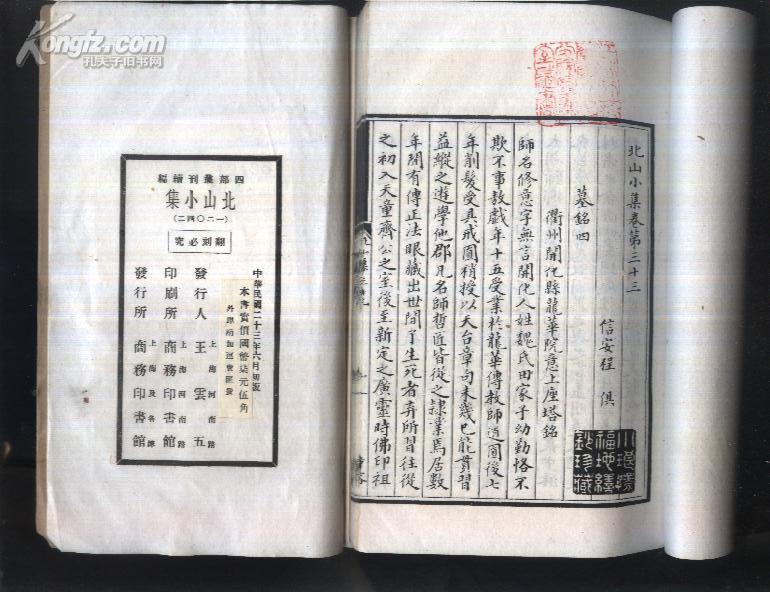 北山小集卷第三十三
信安程 俱
墓銘四
衢州開化縣龍華院意上座塔銘
師名修意字無言開化人姓魏氏田家子幼勤恪不
欺不事敖戲年十五受業於龍華傳教師道圓後七
年削髮受具戒圓稍授以天台章句未幾已能貫習
益縱之遊學他郡凡名師哲匠皆從之隷業焉居數
年聞有傳正法眼藏出世間了生死者弃所習往從
之初入天童齊公之室後至新定之廣靈時佛印祖
Kongfz.com
孔夫子旧书网
四部叢刊續編
北山小集
(一二〇四二)
翻刻必究
中華民國二十三年六月初版
本書實價國幣柒元伍角
外埠酌加運費匯費
發行人 上海河南路 王雲五
印刷所 上海河南路 商務印書館
發行所 上海及各埠 商務印書館